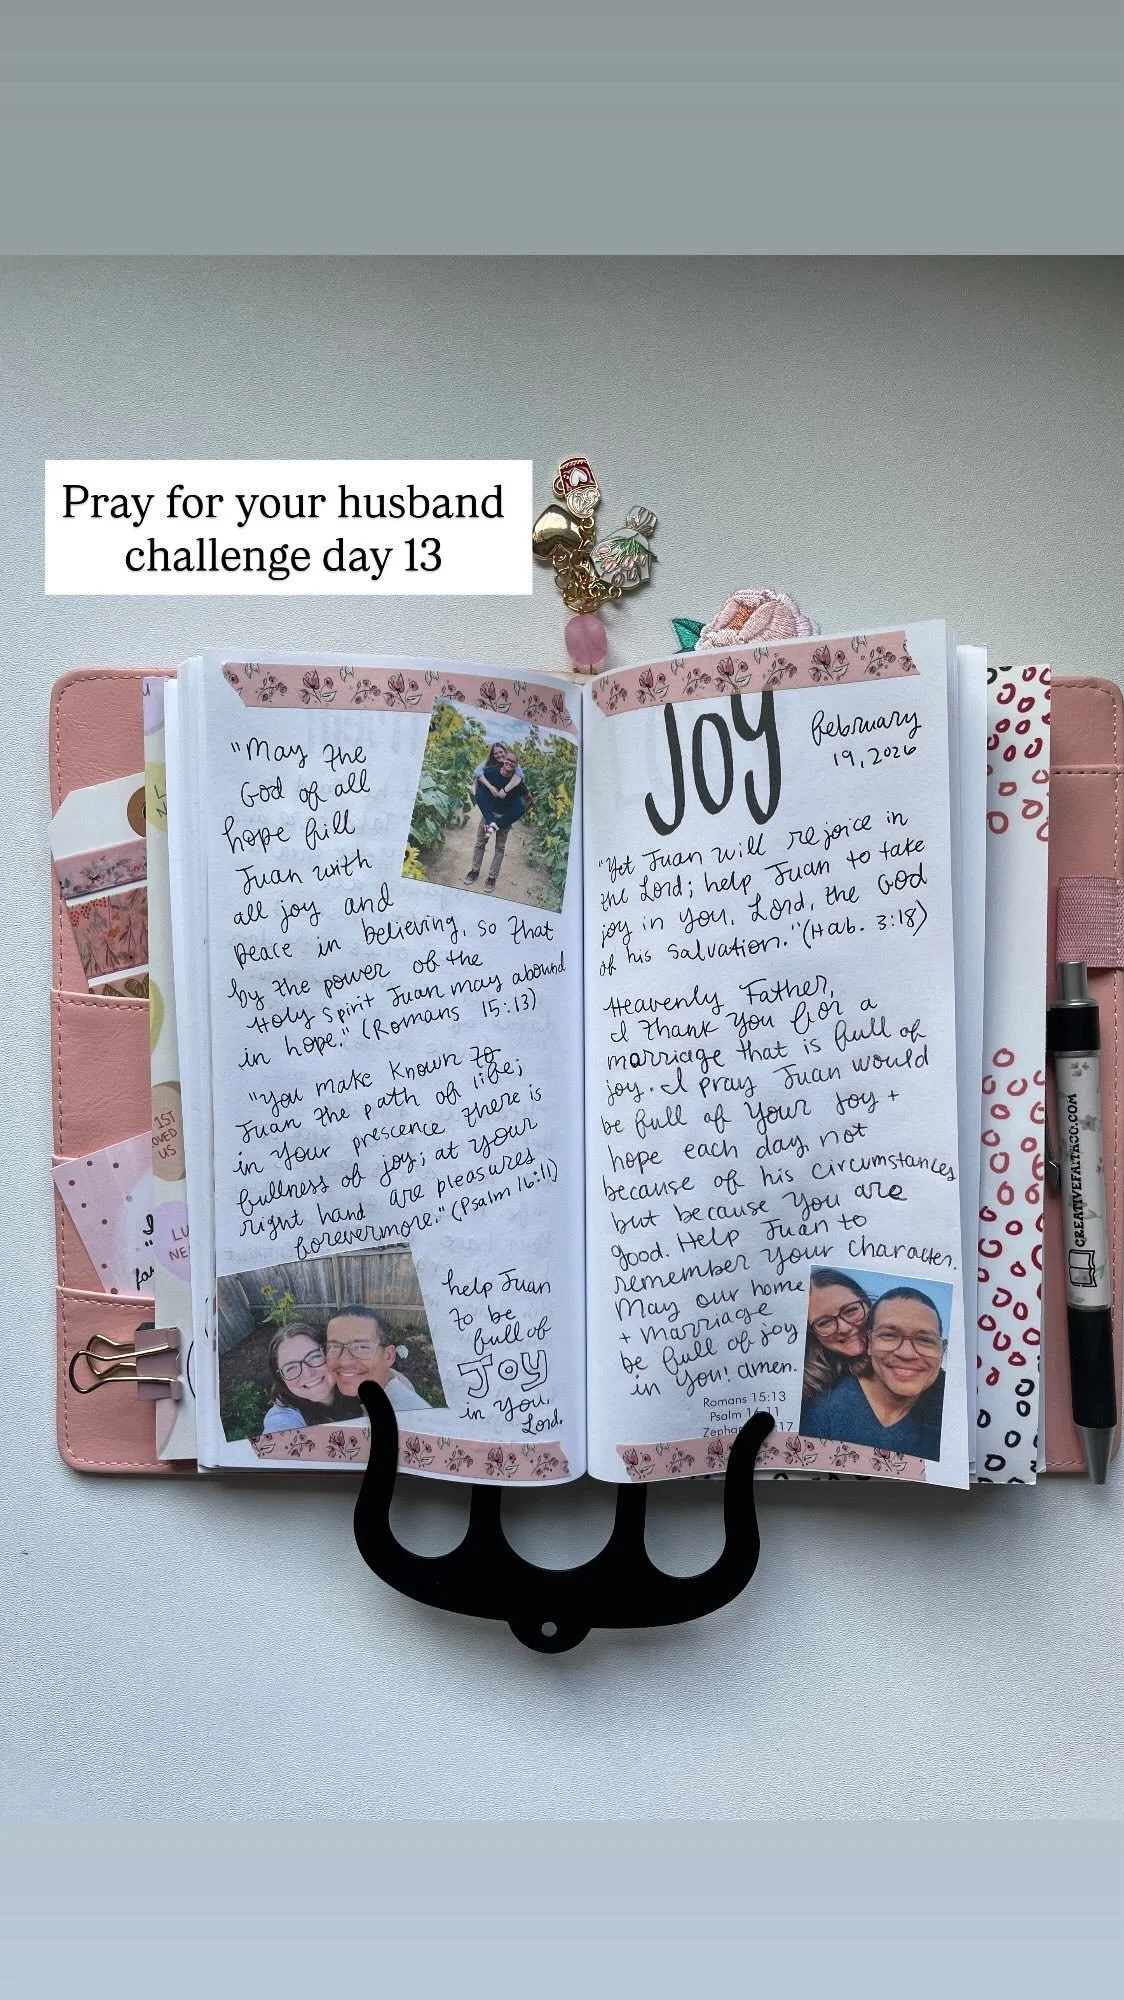 Pray for your husband
challenge day 13
"May the
God of all
hope fill
Juan with
all joy and
peace in believing, so that
by the power of the
Holy Spirit Juan may abound
in hope." (Romans 15:13)
"You make known to
Juan the path of life;
in your prescence there is
fullness of joy; at your
right hand are pleasures
forevermore." (Psalm 16:11)
help Juan
to be
full of
JOY
in you,
Lord.
Joy
february
19, 2026
"Yet Juan will rejoice in
the Lord; help Juan to take
joy in you, Lord, the God
of his salvation." (Hab. 3:18)
Heavenly Father,
I thank you for a
marriage that is full of
joy. I pray Juan would
be full of your joy +
hope each day, not
because of his circumstances
but because you are
good. Help Juan to
remember your character.
May our home
+ marriage
be full of joy
in you! amen.
Romans 15:13
Psalm 16:11
17
1ST
OVED
US
LU
NE
CREATIVEFAITHCO.COM